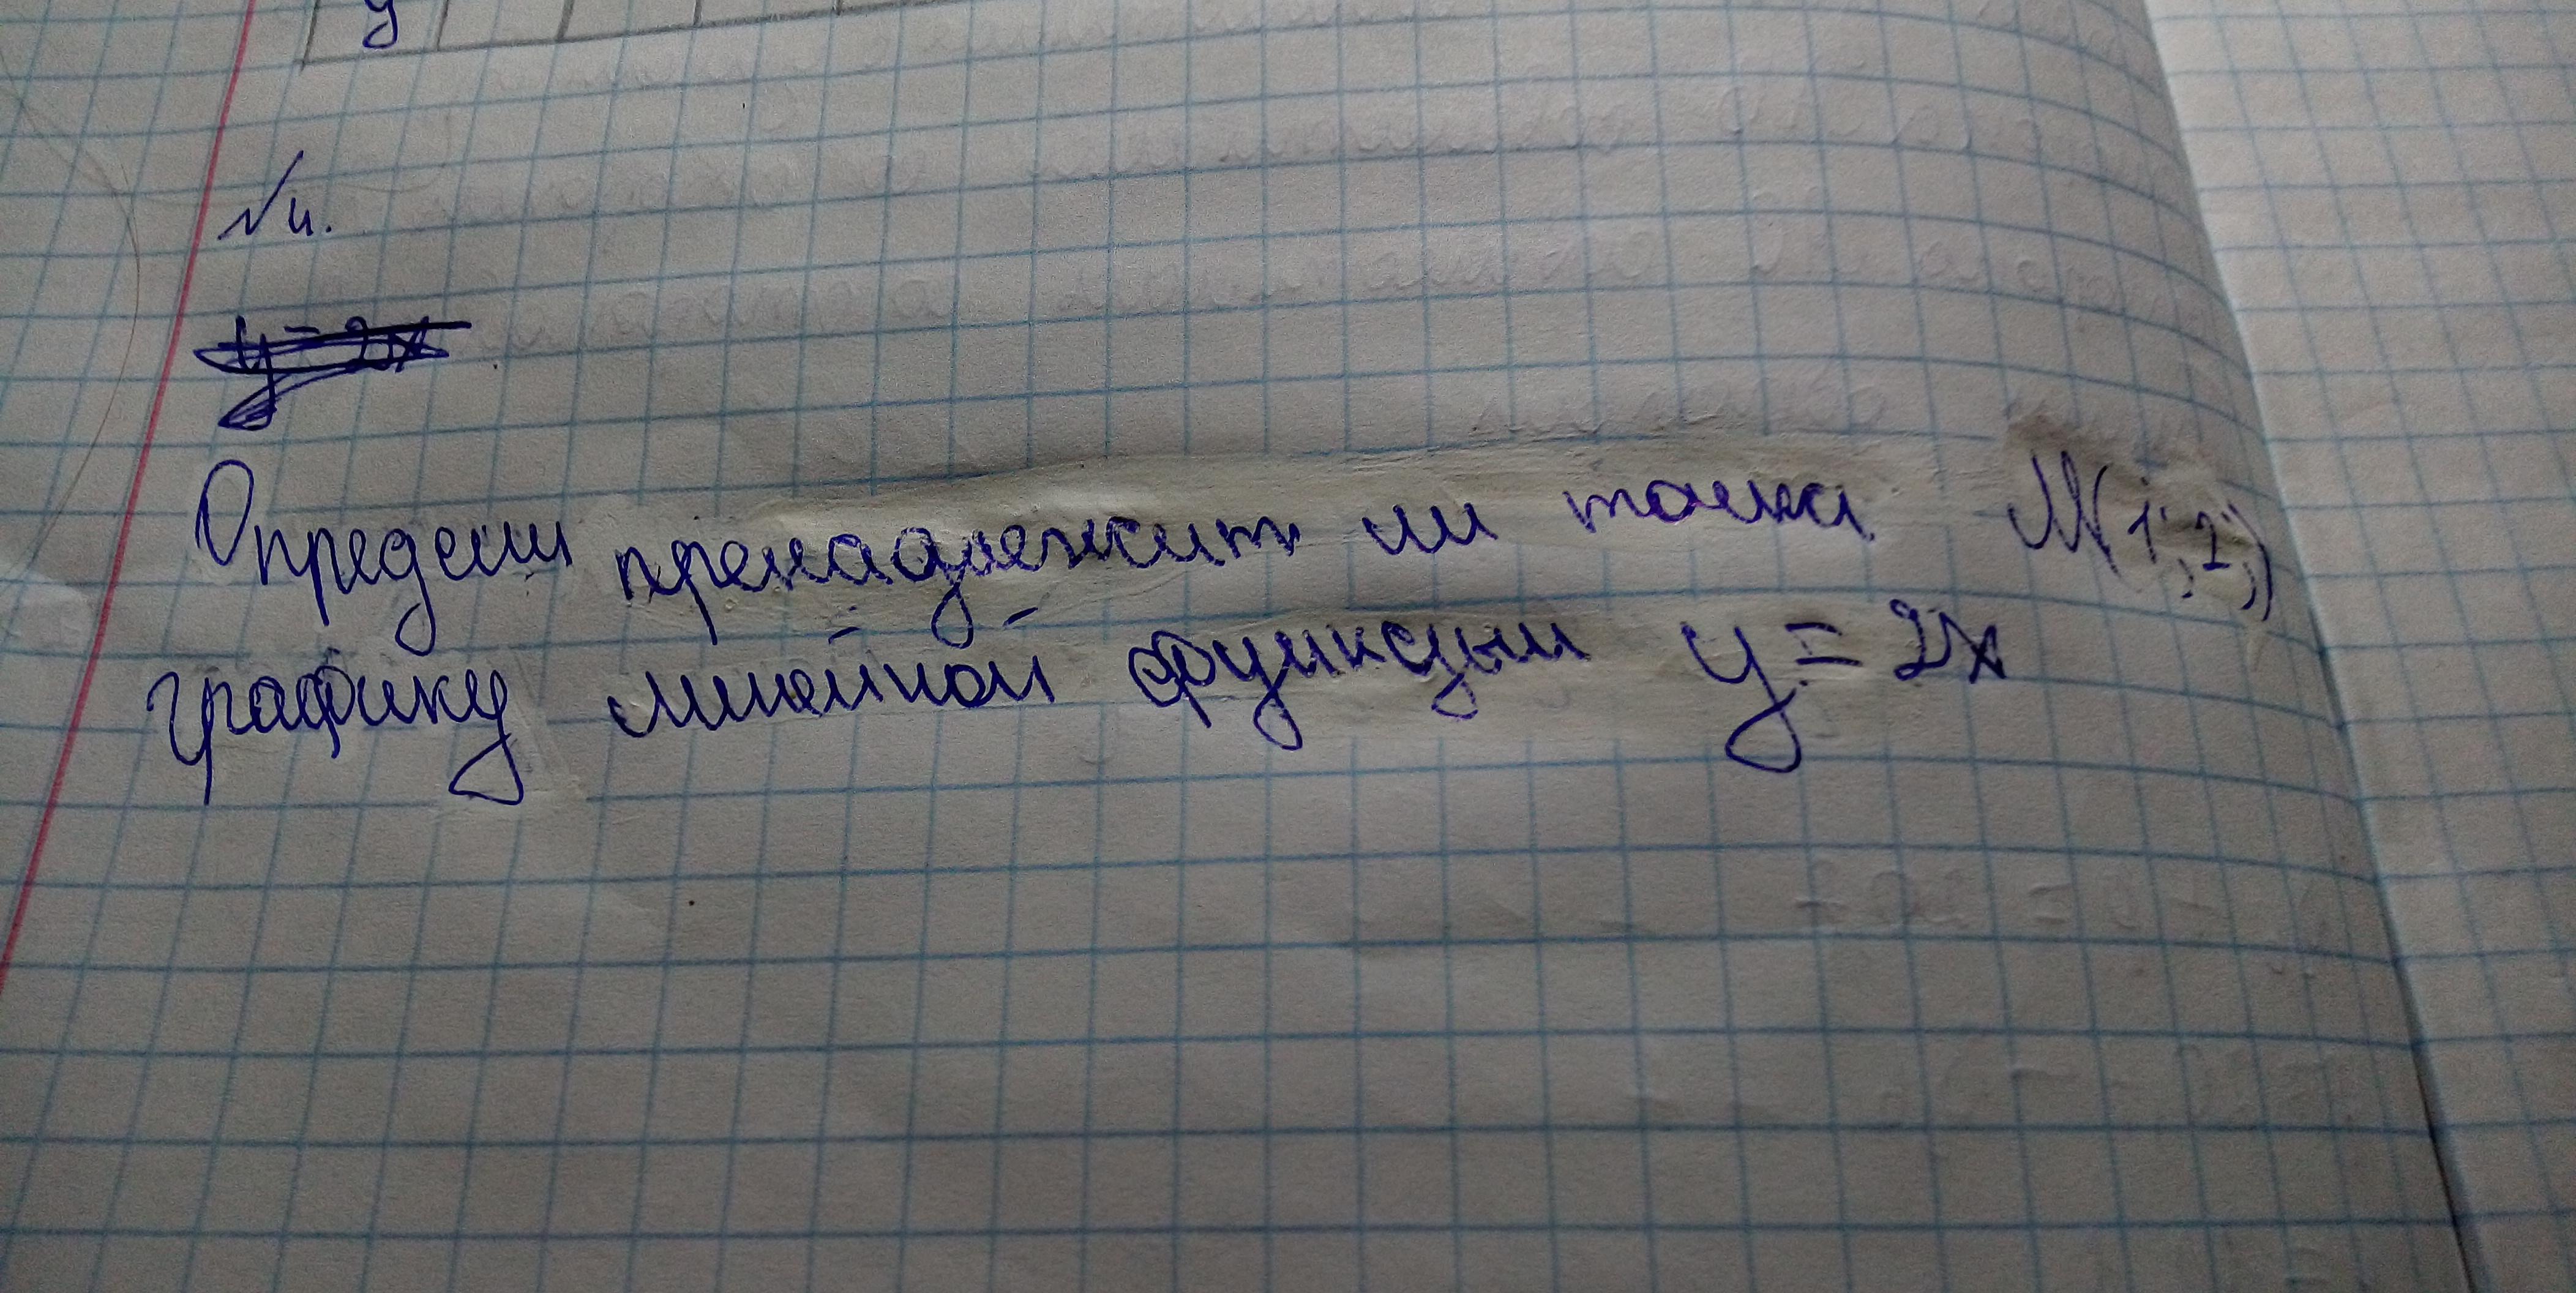 y
№ 4.
y = 2x
Определи пренадлежит ли точка M(1; 2;)
графику линейной функции y = 2x